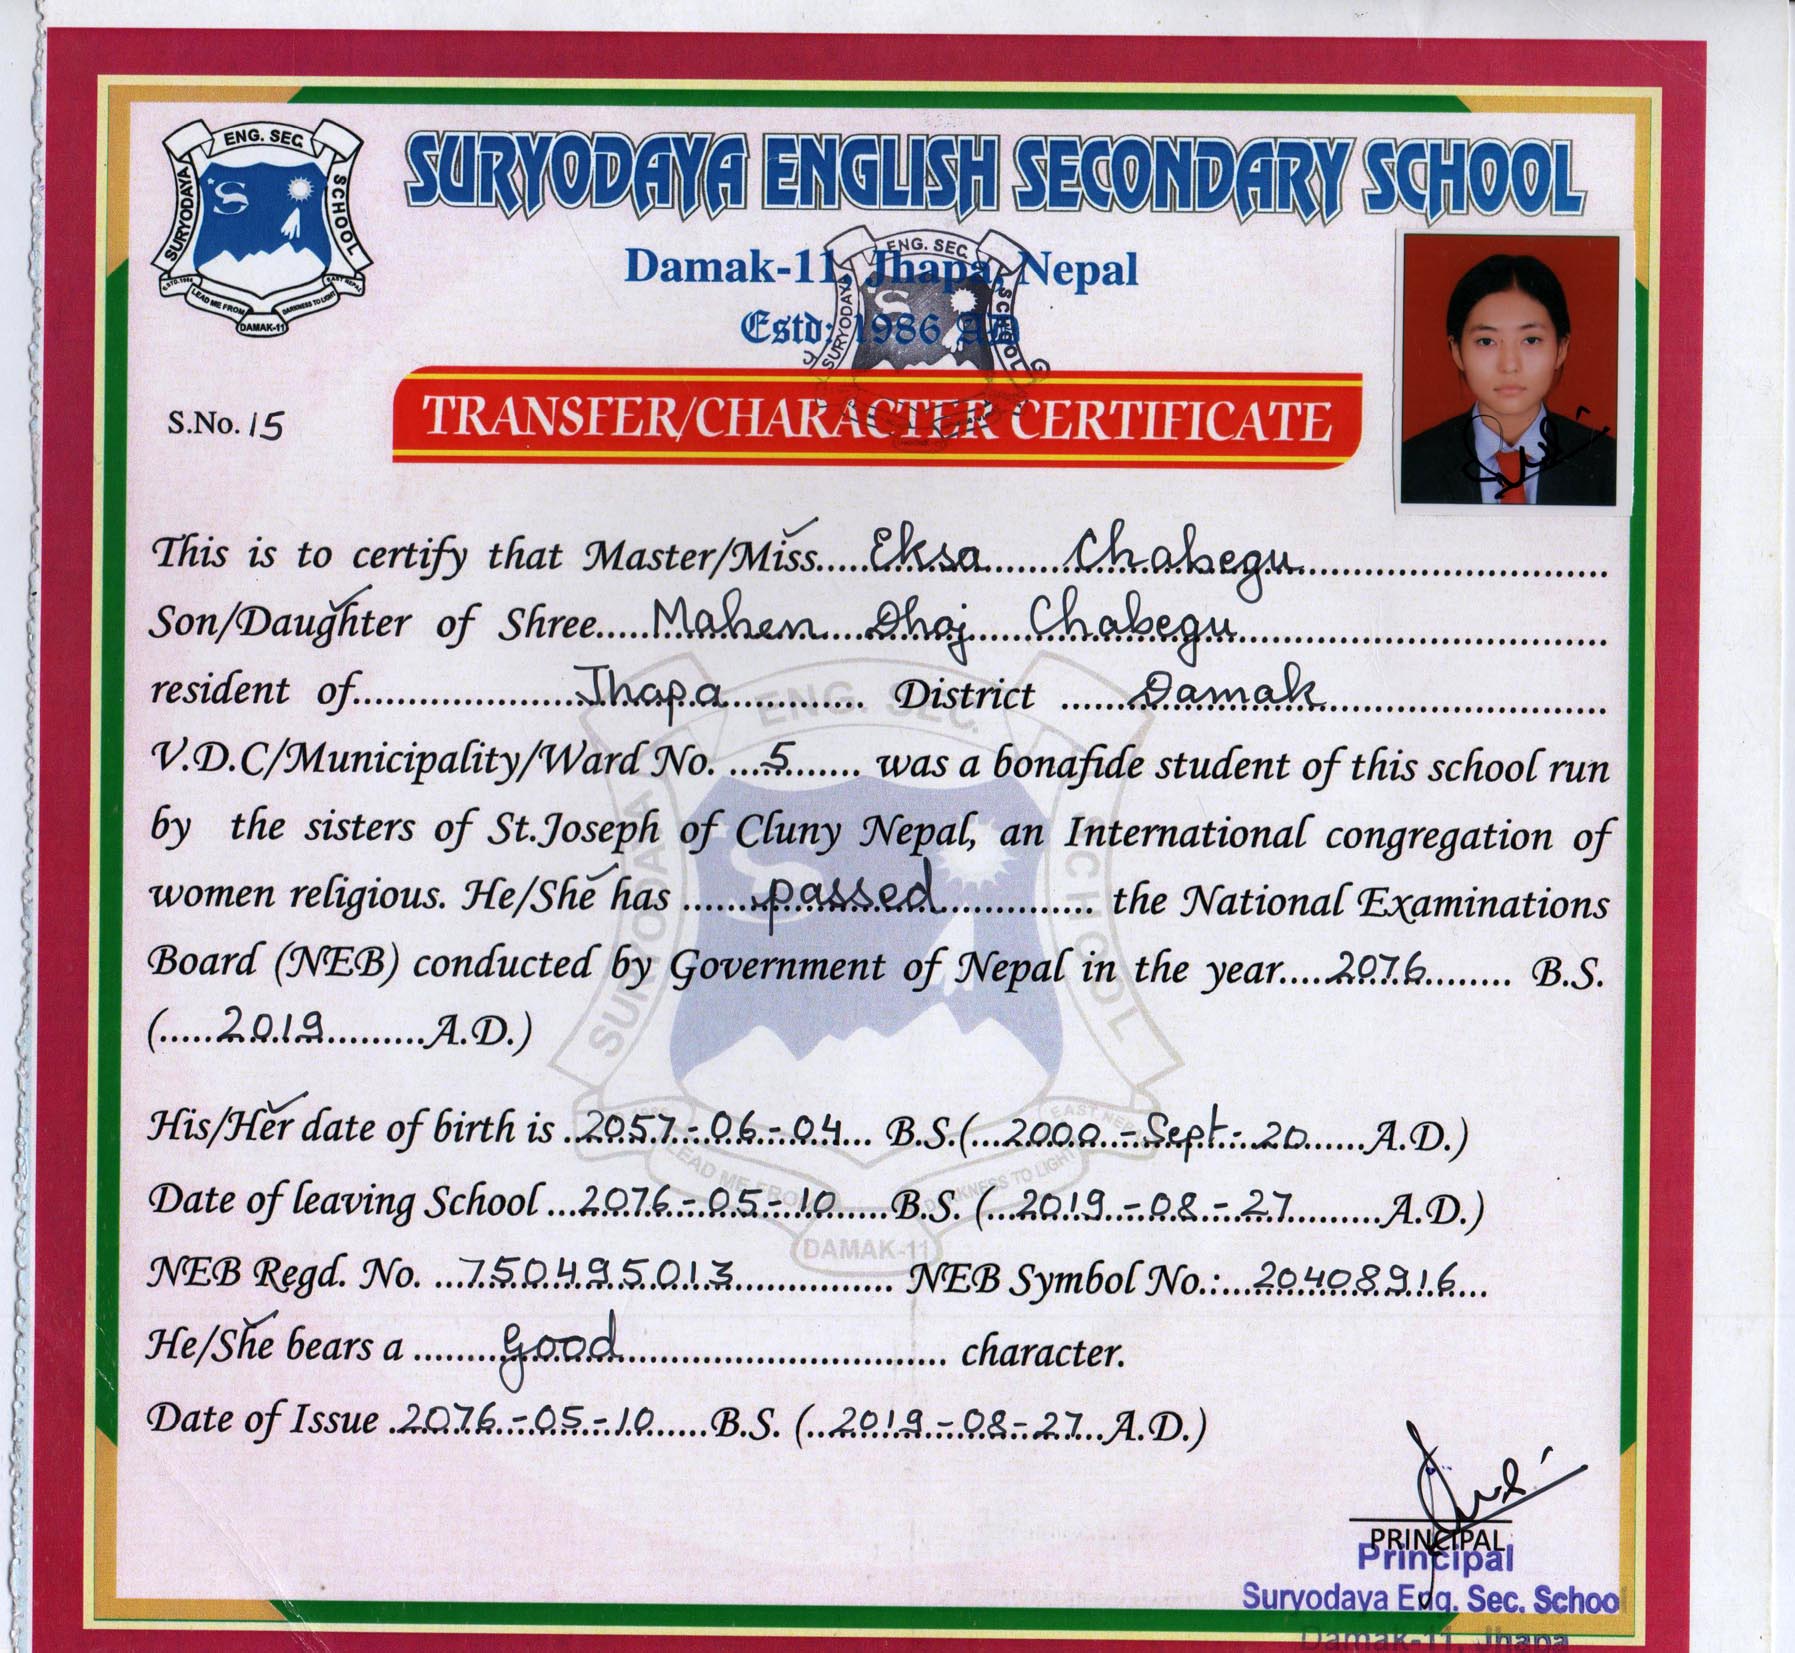 ENG. SEC.
SURYODAYA
SCHOOL
S
ESTD.1986
EAST NEPAL
LEAD ME FROM
DARKNESS TO LIGHT
DAMAK-11
SURYODAYA ENGLISH SECONDARY SCHOOL
Damak-11, Jhapa, Nepal
Estd: 1986 AD
ENG. SEC.
SURYODAYA
SCHOOL
S
S.No. 15
TRANSFER/CHARACTER CERTIFICATE
This is to certify that Master/Miss.....Eksa Chabegu
Son/Daughter of Shree.....Mahen Dhoj Chabegu
resident of..........Jhapa.......... District ......Damak
V.D.C/Municipality/Ward No. ....5........ was a bonafide student of this school run
by the sisters of St.Joseph of Cluny Nepal, an International congregation of
women religious. He/She has ......passed............ the National Examinations
Board (NEB) conducted by Government of Nepal in the year....2076........ B.S.
(.....2019..........A.D.)
His/Her date of birth is ..2057-06-04... B.S.(...2000-Sept-20......A.D.)
Date of leaving School ...2076-05-10......B.S. (...2019-08-27.........A.D.)
NEB Regd. No. ...750495013............... NEB Symbol No.:...20408916...
He/She bears a ........Good.............................. character.
Date of Issue .2076-05-10......B.S. (...2019-08-27...A.D.)
ENG. SEC.
SURYODAYA
SCHOOL
S
1986
EAST NEPAL
LEAD ME FROM
DARKNESS TO LIGHT
DAMAK-11
PRINCIPAL
Principal
Suryodaya Eng. Sec. School
Damak-11, Jhapa